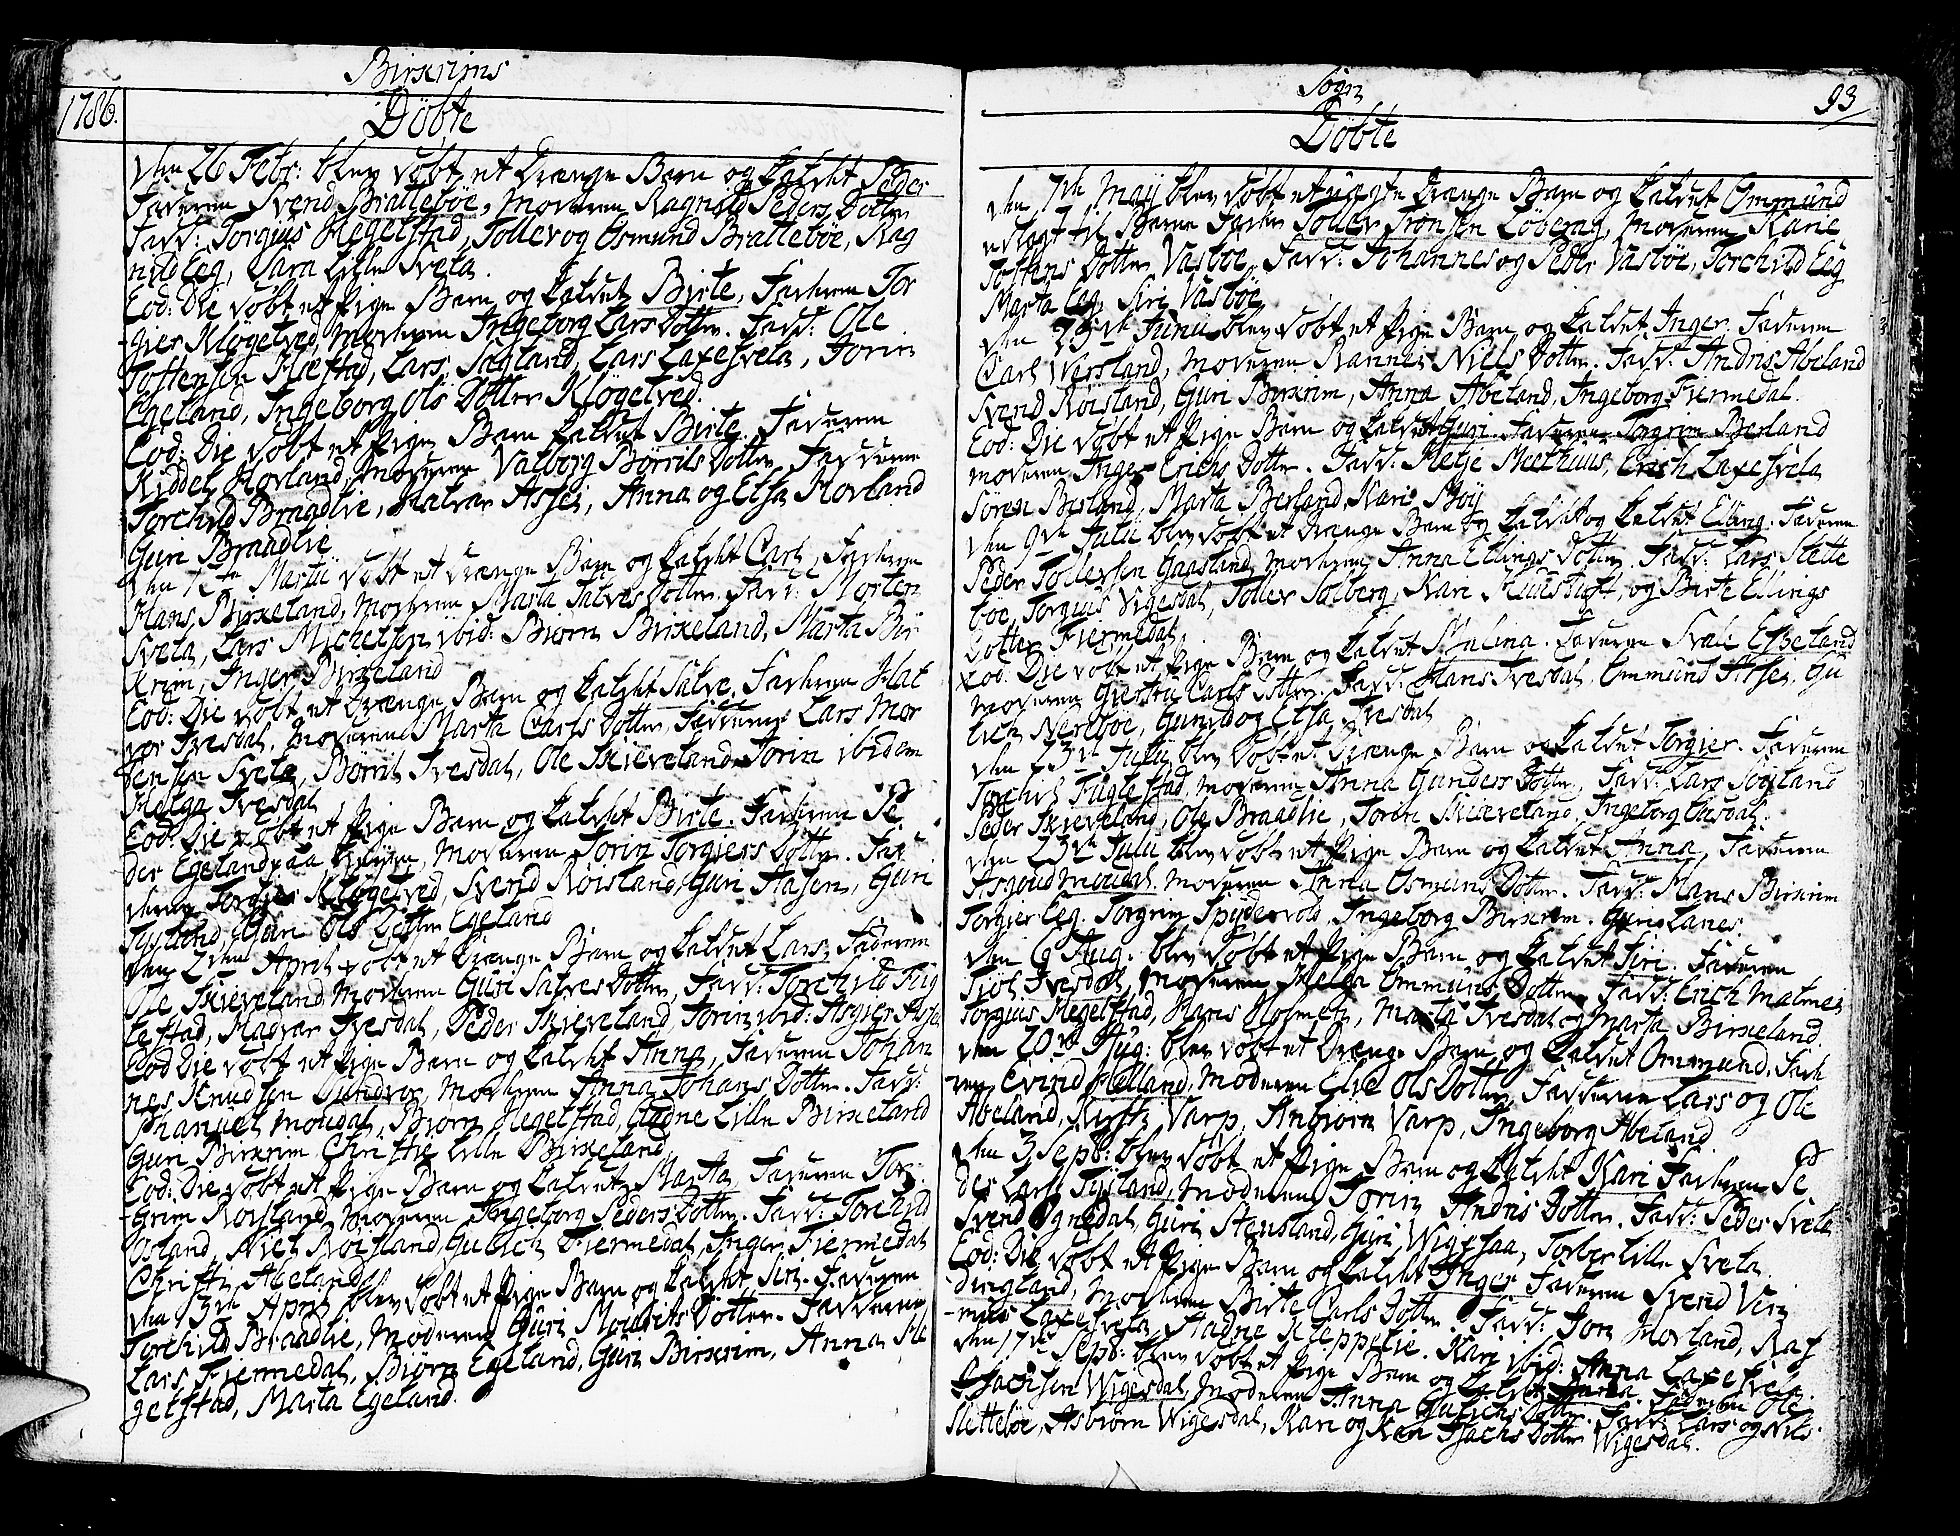 Birxrims
1786.
Döbte
den 26 Febr: blev döbt et Drænge Barn og kaldet Peder
Faderen Svend Brattebøe, Moderen Ragnild Peders Dotter
Fadd: Torgius Hegelstad, Tollev og Osmund Brattebøe, Rag
nild Eeg, Sara Lille Svela.
Eod: Die döbt et Pige Barn og kaldet Birte, Faderen Tor
gier Kløgetved, Moderen Ingeborg Lars Dotter. Fadd: Ole
Tostensen Hæstad, Lars Sagland, Lars Laxesvela, Torin
Egeland, Ingeborg Ols Dotter Kløgetved.
Eod: Die döbt et Pige Barn kaldet Birte. Faderen
Kiddel Hovland, Moderen Valborg Børrils Dotter, Fadderne
Torchild Braadlie, Halvar Assei, Anna og Elsa Hovland
Guri Braadlie
den Martii döbt et Drænge Barn og kaldet Carl, Faderen
Hans Birkeland, Moderen Marta Salves Dotter. Fadd: Morten
Svela, Lars Michelsen ibid: Biørn Birkeland, Marta Bir
krem, Inger Birkeland
Eod: Die döbt et Drænge Barn og kaldet Salve. Faderen Hal
vor Ivesdal. Moderen Marta Carls Dotter, Fadderne Lars Mor
tensen Svela, Børril Ivesdal, Ole Skieveland, Torin ibidem
Helga Ivesdal
Eod: Die döbt et Pige Barn og kaldet Birte. Faderen Pe
der Egeland paa Heyen, Moderen Torin Torgiers Dotter. Fad
derne Torgier Kløgetved, Svend Roisland, Guri Aasen, Guri
Tysland, Guri Ols Dotter Egeland
den 2den April döbt et Drænge Barn og kaldet Lars, Faderen
Ole Skieveland Moderen Guri Salves Dotter, Fadd: Torchild Fug
lestad, Magvar Ivesdal, Peder Skieveland, Torin ibid: Asgier Assei
Eod Die döbt et Pige Barn og kaldet Anna, Faderen Johan
nes Knudsen Gundvor, Moderen Anna Johans Dotter. Fadd:
Manuel Moudal, Biørn Hegelstad, Aadne Lille Birkeland
Guri Birkrim Christie Lille Birkeland
Eod: Die döbt et Pige Barn og kaldet Marta, Faderen Tor
grim Roisland, Moderen Ingeborg Peders Dotter. Fadd: Torchild
Osland, Niel Roisland, Gulich Fiermedal, Inger Fiermedal
Christi Abeland
den 13de April blev döbt et Pige Barn og kaldet Siri. Faderen
Torchild Braadlie, Moderen Guri Mourits Dotter. Fadderne
Lars Fiermedal, Biørn Egeland, Guri Birkrim, Anna He
gelstad, Marta Egeland.
Sogn
93
Döbte
den 7de Maij blev döbt et uægte Drænge Barn og kaldet Ommund
udlagt til Barne Fader Tollev Tronsen Löberg, Moderen Karie
Tostens Dotter Vasbøe, Fadd: Johannes og Peder Vasbøe, Torchild Eeg
Marta Eeg, Siri Vasbøe
den 29de Junii blev döbt et Pige Barn og kaldet Inger. Faderen
Carl Wersland, Moderen Rannei Niels Dotter. Fadd: Andris Abeland
Svend Roisland, Guri Birkrim, Anna Abeland, Ingeborg Fiermedal.
Eod: Die döbt et Pige Barn og kaldet Guri. Faderen Torgrim Berland
moderen Inger Erichs Dotter. Fadd: Metje Meethuus, Erich Laxesvela
Søren Besland, Marta Berland, Kari Møy
den 9de Julii blev döbt et Drænge Barn og kaldet og kaldet Elling. Faderen
Peder Tollevsen Gaasland, Moderen Anna Ellings Dotter. Fadd: Lars Slette
boe, Torgius Vigesdal, Tollev Solberg, Kari og Birte Ellings
Dotter Fiermedal.
Eod: Die döbt et Pige Barn og kaldet Malina. Faderen Svale Espeland
moderen Giertru Carls Dotter. Fadd: Hans Ivesdal. Ommund Assei, Gu
lich Nerebøe, Gunild og Elsa Ivesdal
den 23de Julii blev döbt et Drænge Barn og kaldet Torgier. Faderen
Torchil Fuglestad, Moderen Anna Gunders Dotter, Fadd: Lars Sogland
Peder Skieveland, Ole Braadlie, Toren Skieveland, Ingeborg Oasdal.
den 23de Julii blev döbt et Pige Barn og kaldet Anna, Faderen
Asgoud Moudal. Moderen Anna Osmuns Dotter. Fadd: Hans Birkrim
Torgier Eeg. Torgrim Spydevold, Ingeborg Birkrim. Guri Lanes.
den 6 Aug: blev döbt et Pige Barn og kaldet Siri. Faderen
Siol Ivesdal, Moderen Helga Ommuns Dotter. Fadd: Erich Malmei
Torgius Hegelstad, Hans Holmen, Marta Ivesdal og Marta Birkeland.
den 20de Aug: blev döbt et Drænge Barn og kaldet Ommund, Fade
ren Eivind Helland, Moderen Elie Ols Dotter, Fadderne Lars og Ole
Abeland, Kirsti Varp, Anbiorn Varp, Ingeborg Abeland
den 3 Sepb: blev döbt et Pige Barn og kaldet Kari Faderen Pe
der Lars. Tysland, Moderen Torin Andris Dotter. Fadd: Peder Svela
Svend Ognedal, Guri Stensland, Guri Wigesaa, Torber Lille Svela
Eod: Die döbt et Pige Barn og kaldet Inger Faderen Svend Vin
dingland, Moderen Birte Carls Dotter. Fadd: Jon Hovland, Ras
mus Laxesvela, Aadne Kleppelie. Kari ibid: Anna Laxesvela.
den 17de Sepb: blev döbt et Pige Barn og kaldet Anna Faderen Ole
Isachsen Wigesdal, Moderen Anna Gulichs Dotter. Fadd: Lars og Nils
Slettebøe, Asbiorn Wigesdal, Kari og Kari Isachs Dotter Wigesdal.